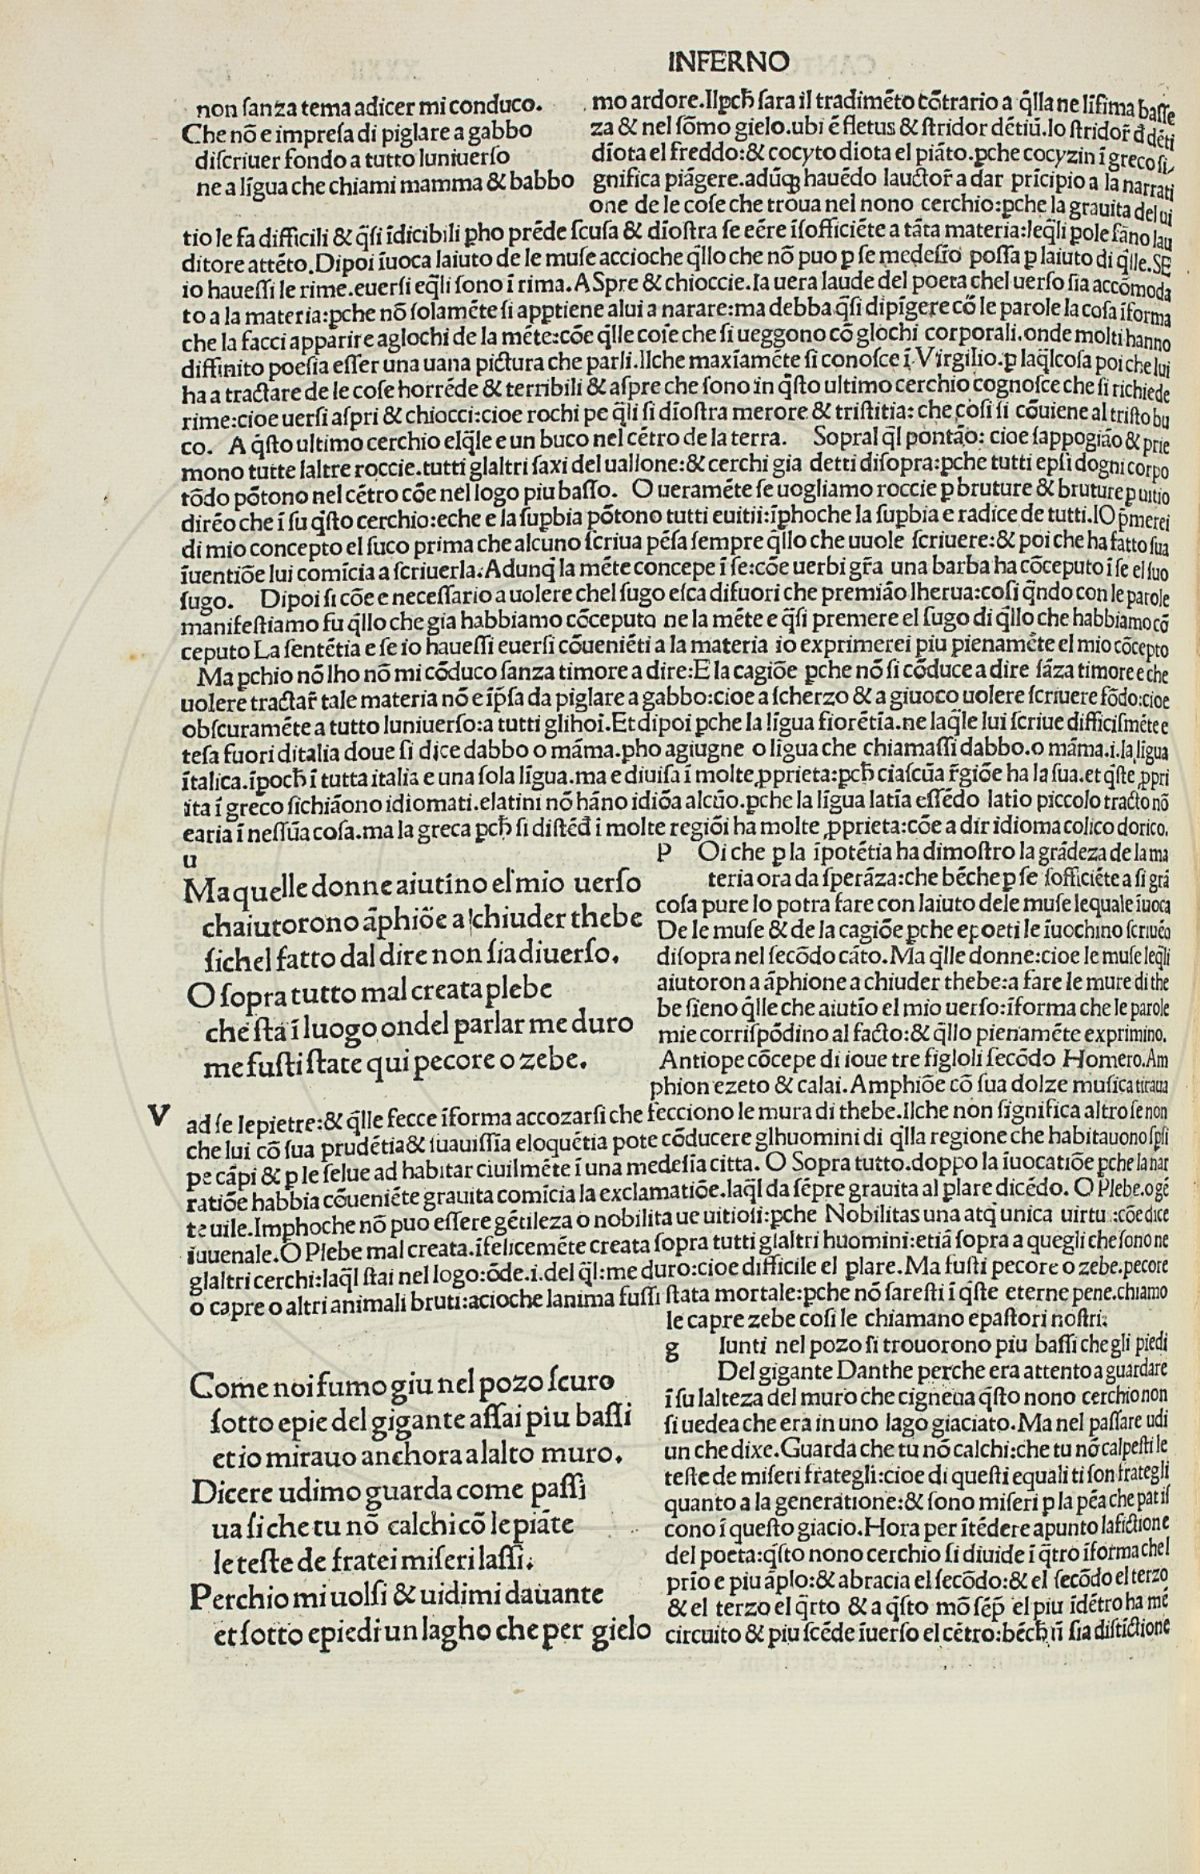 INFERNO
non ſanza tema a dicer mi conduco.
Che nõ e impreſa di piglare a gabbo
diſcriuer fondo a tutto luniuerſo
ne a lĩgua che chiami mamma & babbo
mo ardore. Il pch̃ ſara il tradimẽto cõtrario a q̃lla ne lĩfima baſſe
za & nel ſõmo gielo. ubi ẽ fletus & ſtridor dẽtiũ. lo ſtridor̃ đ dẽti
dĩota el freddo: & cocyto dĩota el piãto. pche cocyzin ĩ greco ſi
gnifica piãgere. adũq̃ hauẽdo lauctor̃ a dar prĩcipio a la narrati
one de le coſe che troua nel nono cerchio: pche la grauita del ui
tio le fa difficili & q̃ſi ĩdicibili pho prẽde ſcuſa & dĩoſtra ſe eẽre ĩſofficiẽte a tãta materia: leq̃li pole ſãno lau
ditore attẽto. Dipoi ĩuoca laiuto de le muſe accioche q̃llo che nõ puo p ſe medeſĩo poſſa p laiuto di q̃lle. SE
io haueſſi le rime. euerſi eq̃li ſono ĩ rima. ASpre & chioccie. la uera laude del poeta chel uerſo ſia accõmoda
to a la materia: pche nõ ſolamẽte ſi apptiene alui a narare: ma debba q̃ſi dipĩgere cõ le parole la coſa ĩforma
che la facci apparire aglochi de la mẽte: cõe q̃lle coſe che ſi ueggono cõ glochi corporali. onde molti hanno
diffinito poeſia eſſer una uana pictura che parli. Ilche maxĩamẽte ſi conoſce ĩ Virgilio. p laq̃lcoſa poi che lui
ha a tractare de le coſe horrẽde & terribili & aſpre che ſono in q̃ſto ultimo cerchio cognoſce che ſi richiede
rime: cioe uerſi aſpri & chiocci: cioe rochi pe q̃li ſi dĩoſtra merore & triſtitia: che coſi ſi cõuiene al triſto bu
co. A q̃ſto ultimo cerchio elq̃le e un buco nel cẽtro de la terra. Sopral q̃l pontão: cioe ſappogião & prie
mono tutte laltre roccie. tutti glaltri ſaxi del uallone: & cerchi gia detti diſopra: pche tutti epſi dogni corpo
tõdo põtono nel cẽtro cõe nel logo piu baſſo. O ueramẽte ſe uogliamo roccie p bruture & bruture p uitio
dirẽo che ĩ ſu q̃ſto cerchio: eche e la ſupbia põtono tutti euitii: ĩphoche la ſupbia e radice de tutti. IO p̃merei
di mio concepto el ſuco prima che alcuno ſcriua pẽſa ſempre q̃llo che uuole ſcriuere: & poi che ha fatto ſua
ĩuentiõe lui comĩcia a ſcriuerla. Adunq̃ la mẽte concepe ĩ ſe: cõe uerbi gr̃a una barba ha cõceputo ĩ ſe el ſuo
ſugo. Dipoi ſi cõe e neceſſario a uolere chel ſugo eſca difuori che premião lherua: coſi q̃ndo con le parole
manifeſtiamo fu q̃llo che gia habbiamo cõceputo ne la mẽte e q̃ſi premere el ſugo di q̃llo che habbiamo cõ
ceputo La ſentẽtia e ſe io haueſſi euerſi cõueniẽti a la materia io exprimerei piu pienamẽte el mio cõcepto
Ma pchio nõ lho nõ mi cõduco ſanza timore a dire: E la cagiõe pche nõ ſi cõduce a dire ſãza timore e che
uolere tractar̃ tale materia nõ e ĩp̃ſa da piglare a gabbo: cioe a ſcherzo & a giuoco uolere ſcriuere fõdo: cioe
obſcuramẽte a tutto luniuerſo: a tutti glihoi. Et dipoi pche la lĩgua fiorẽtĩa. ne laq̃le lui ſcriue difficiſmẽte e
teſa fuori ditalia doue ſi dice dabbo o mãma. pho agiugne o lĩgua che chiamaſſi dabbo. o mãma. i. la lĩgua
ĩtalica. ĩpoch̃ ĩ tutta italia e una ſola lĩgua. ma e diuiſa ĩ molte pprieta: pch̃ ciaſcũa r̃giõe ha la ſua. et q̃ſte ppri
ita ĩ greco ſi chiãono idiomati. elatini nõ hãno idiõa alcũo. pche la lĩgua latĩa eſſẽdo latio piccolo tracto nõ
earia ĩ neſſũa coſa. ma la greca pch̃ ſi diſtẽđ ĩ molte regiõi ha molte pprieta: cõe a dir idioma colico dorico.
u
Ma quelle donne aiutino el mio uerſo
chaiutorono ãphiõe a chiuder thebe
ſichel fatto dal dire non ſia diuerſo.
O ſopra tutto mal creata plebe
che ſta ĩ luogo ondel parlar me duro
me fuſti ſtate qui pecore o zebe.
P Oi che p la ĩpotẽtia ha dimoſtro la grãdeza de la ma
teria ora da ſperãza: che bẽche p ſe ſofficiẽte a ſi grã
coſa pure lo potra fare con laiuto dele muſe lequale ĩuoca
De le muſe & de la cagiõe pche epoeti le ĩuochino ſcriuẽo
diſopra nel ſecõdo cãto. Ma q̃lle donne: cioe le muſe leq̃li
aiutoron a ãphione a chiuder thebe: a fare le mure di the
be ſieno q̃lle che aiutĩo el mio uerſo: ĩforma che le parole
mie corriſpõdino al facto: & q̃llo pienamẽte exprimino.
Antiope cõcepe di ioue tre figloli ſecõdo Homero. Am
phion ezeto & calai. Amphiõe cõ ſua dolze muſica tiraua
V
ad ſe le pietre: & q̃lle fecce ĩforma accozarſi che fecciono le mura di thebe. Ilche non ſignifica altro ſe non
che lui cõ ſua prudẽtia & ſuauiſſĩa eloquẽtia pote cõducere glhuomini di q̃lla regione che habitauono ſpſi
pe cãpi & p le ſelue ad habitar ciuilmẽte ĩ una medeſĩa citta. O Sopra tutto. doppo la ĩuocatiõe pche la nar
ratiõe habbia cõueniẽte grauita comĩcia la exclamatiõe. laq̃l da ſẽpre grauita al plare dicẽdo. O Plebe. o gẽ
te uile. Imphoche nõ puo eſſere gẽtileza o nobilita ue uitioſi: pche Nobilitas una atq̃ unica uirtu: cõe dice
iuuenale. O Plebe mal creata. ĩfelicemẽte creata ſopra tutti glaltri huomini: etiã ſopra a quegli che ſono ne
glaltri cerchi: laq̃l ſtai nel logo: õde. i. del q̃l: me duro: cioe difficile el plare. Ma fuſti pecore o zebe. pecore
o capre o altri animali bruti: acioche lanima fuſſi ſtata mortale: pche nõ ſareſti ĩ q̃ſte eterne pene. chiamo
le capre zebe coſi le chiamano epaſtori noſtri.
Come noi fumo giu nel pozo ſcuro
ſotto epie del gigante aſſai piu baſſi
et io mirauo anchora a lalto muro.
Dicere udimo guarda come paſſi
ua ſi che tu nõ calchi cõ le piãte
le teſte de fratei miſeri laſſi.
Perchio mi uolſi & uidimi dauante
et ſotto epiedi un lagho che per gielo
g Iunti nel pozo ſi trouorono piu baſſi che gli piedi
Del gigante Danthe perche era attento a guardare
ĩ ſu lalteza del muro che cigneua q̃ſto nono cerchio non
ſi uedea che era in uno lago giaciato. Ma nel paſſare udi
un che dixe. Guarda che tu nõ calchi: che tu nõ calpeſti le
teſte de miſeri frategli: cioe di queſti equali ti ſon frategli
quanto a la generatione: & ſono miſeri p la pẽa che patiſ
cono ĩ queſto giacio. Hora per ĩtẽdere apunto la fictione
del poeta: q̃ſto nono cerchio ſi diuide ĩ q̃tro ĩforma che l
prĩo e piu ãplo: & abracia el ſecõdo: & el ſecõdo el terzo
& el terzo el q̃rto & a q̃ſto mõ ſẽp̃ el piu ĩdẽtro ha mẽ
circuito & piu ſcẽde ĩuerſo el cẽtro: bẽch̃ ñ ſia diſtĩctione